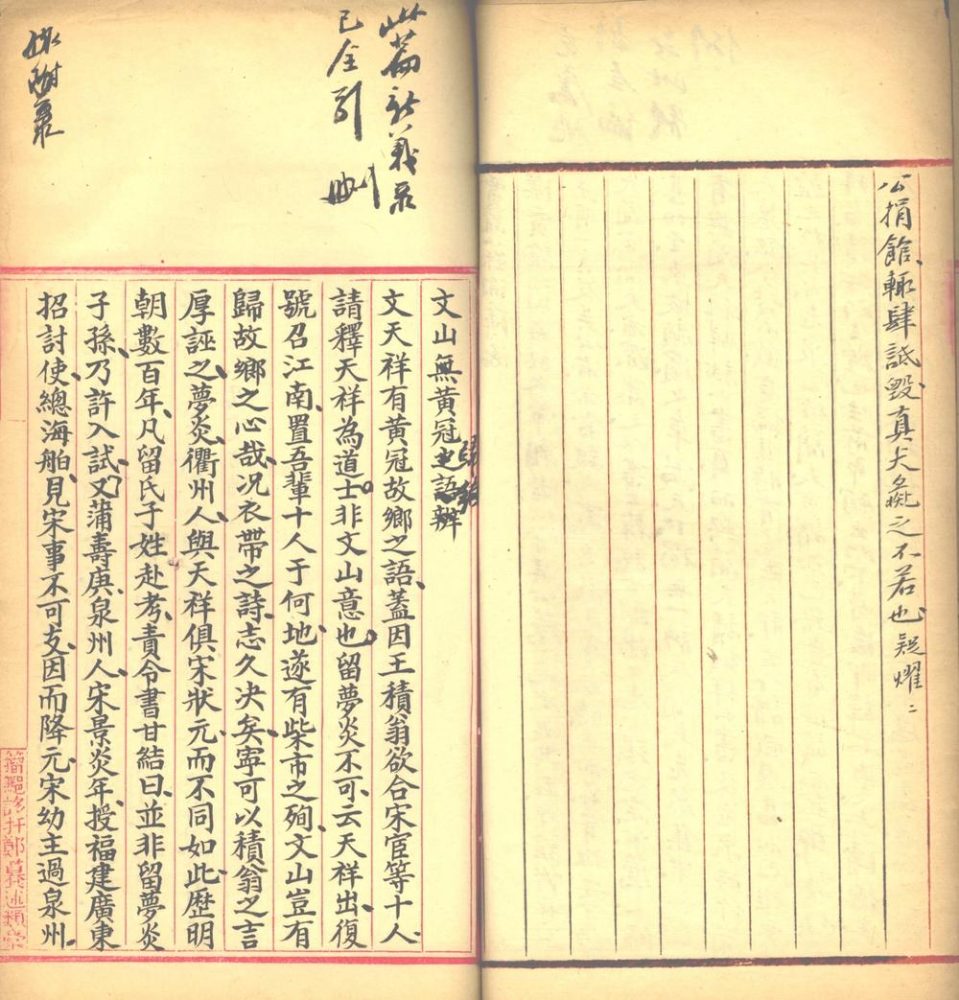 公捐館輒肆詆毀真犬彘之不若也
此篇新義录
已全引刪
文山無黃冠語辨
文天祥有黃冠故鄉之語蓋因王積翁欲合宋宦等十人
請釋天祥為道士非文山意也留夢炎不可云天祥出復
號召江南置吾輩十人于何地遂有柴市之殉文山豈有
歸故鄉之心哉况衣帶之詩志久决矣寧可以積翁之言
厚誣之夢炎衢州人與天祥俱宋狀元而不同如此歷明
朝數百年凡留氏子姓赴考責令書甘結曰並非留夢炎
子孫乃許入試又蒲壽庚泉州人宋景炎年授福建廣東
招討使總海舶見宋事不可支因而降元宋幼主過泉州